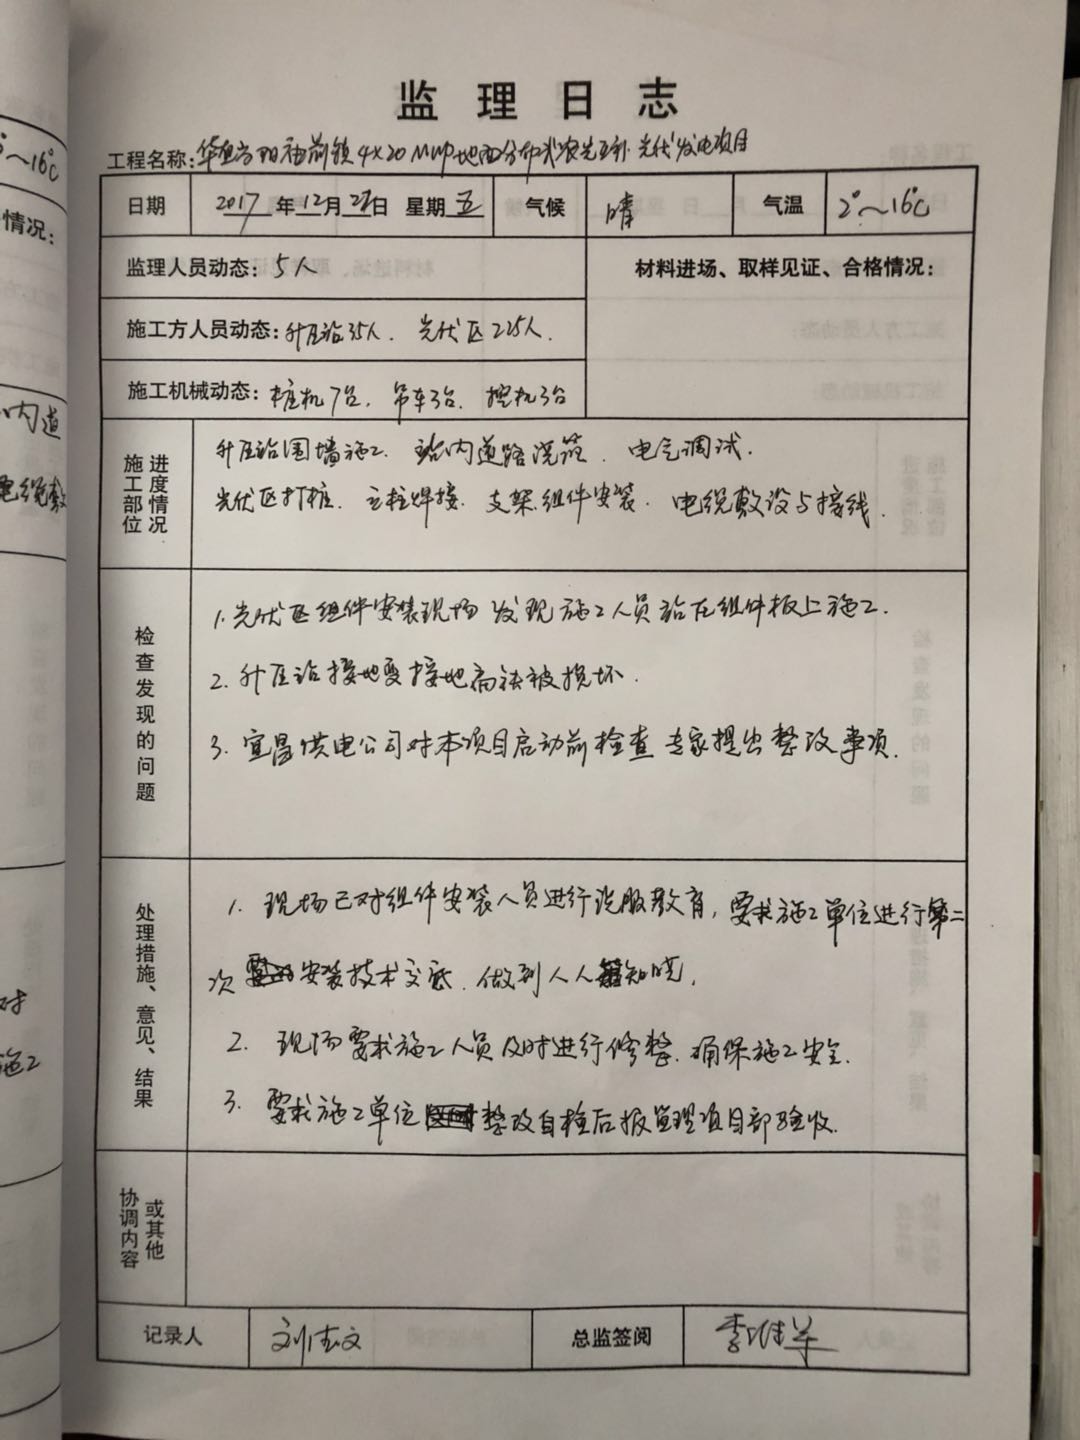 监理日志
工程名称: 华 当阳 前镇 4×20 MWP 地面分布式农光互补 光伏发电项目
日期 2017年12月 日 星期五 气候 晴 气温 2°~16℃
监理人员动态: 5人 材料进场、取样见证、合格情况:
施工方人员动态: 升压站35人. 光伏区225人.
施工机械动态: 桩机7台. 吊车3台. 挖机3台
施工部位进度情况
升压站围墙施工. 站内道路浇筑. 电气调试.
光伏区打桩. 立柱焊接. 支架组件安装. 电缆敷设与接线.
检查发现的问题
1. 光伏区组件安装现场发现施工人员站在组件板上施工.
2. 升压站接地变接地 被损坏.
3. 宜昌供电公司对本项目启动前检查专家提出整改事项.
处理措施、意见、结果
1. 现场已对组件安装人员进行说服教育, 要求施工单位进行第二
次 安装技术交底. 做到人人 知晓.
2. 现场要求施工人员及时进行修整. 确保施工安全.
3. 要求施工单位 整改自检后报监理项目部验收.
协调内容或其他
记录人 刘 文 总监签阅 李
°~16℃
情况:
内道
电缆敷
对
施工